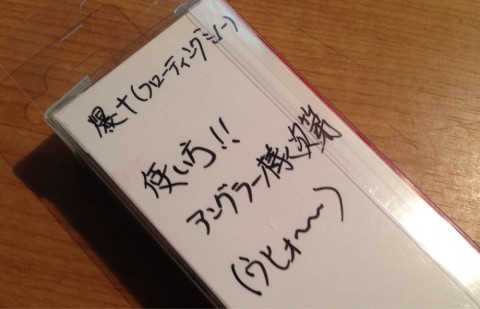 爆十(フローティングシャロー)
使い方!!
アングラー様次第
(ウヒォ〜〜)